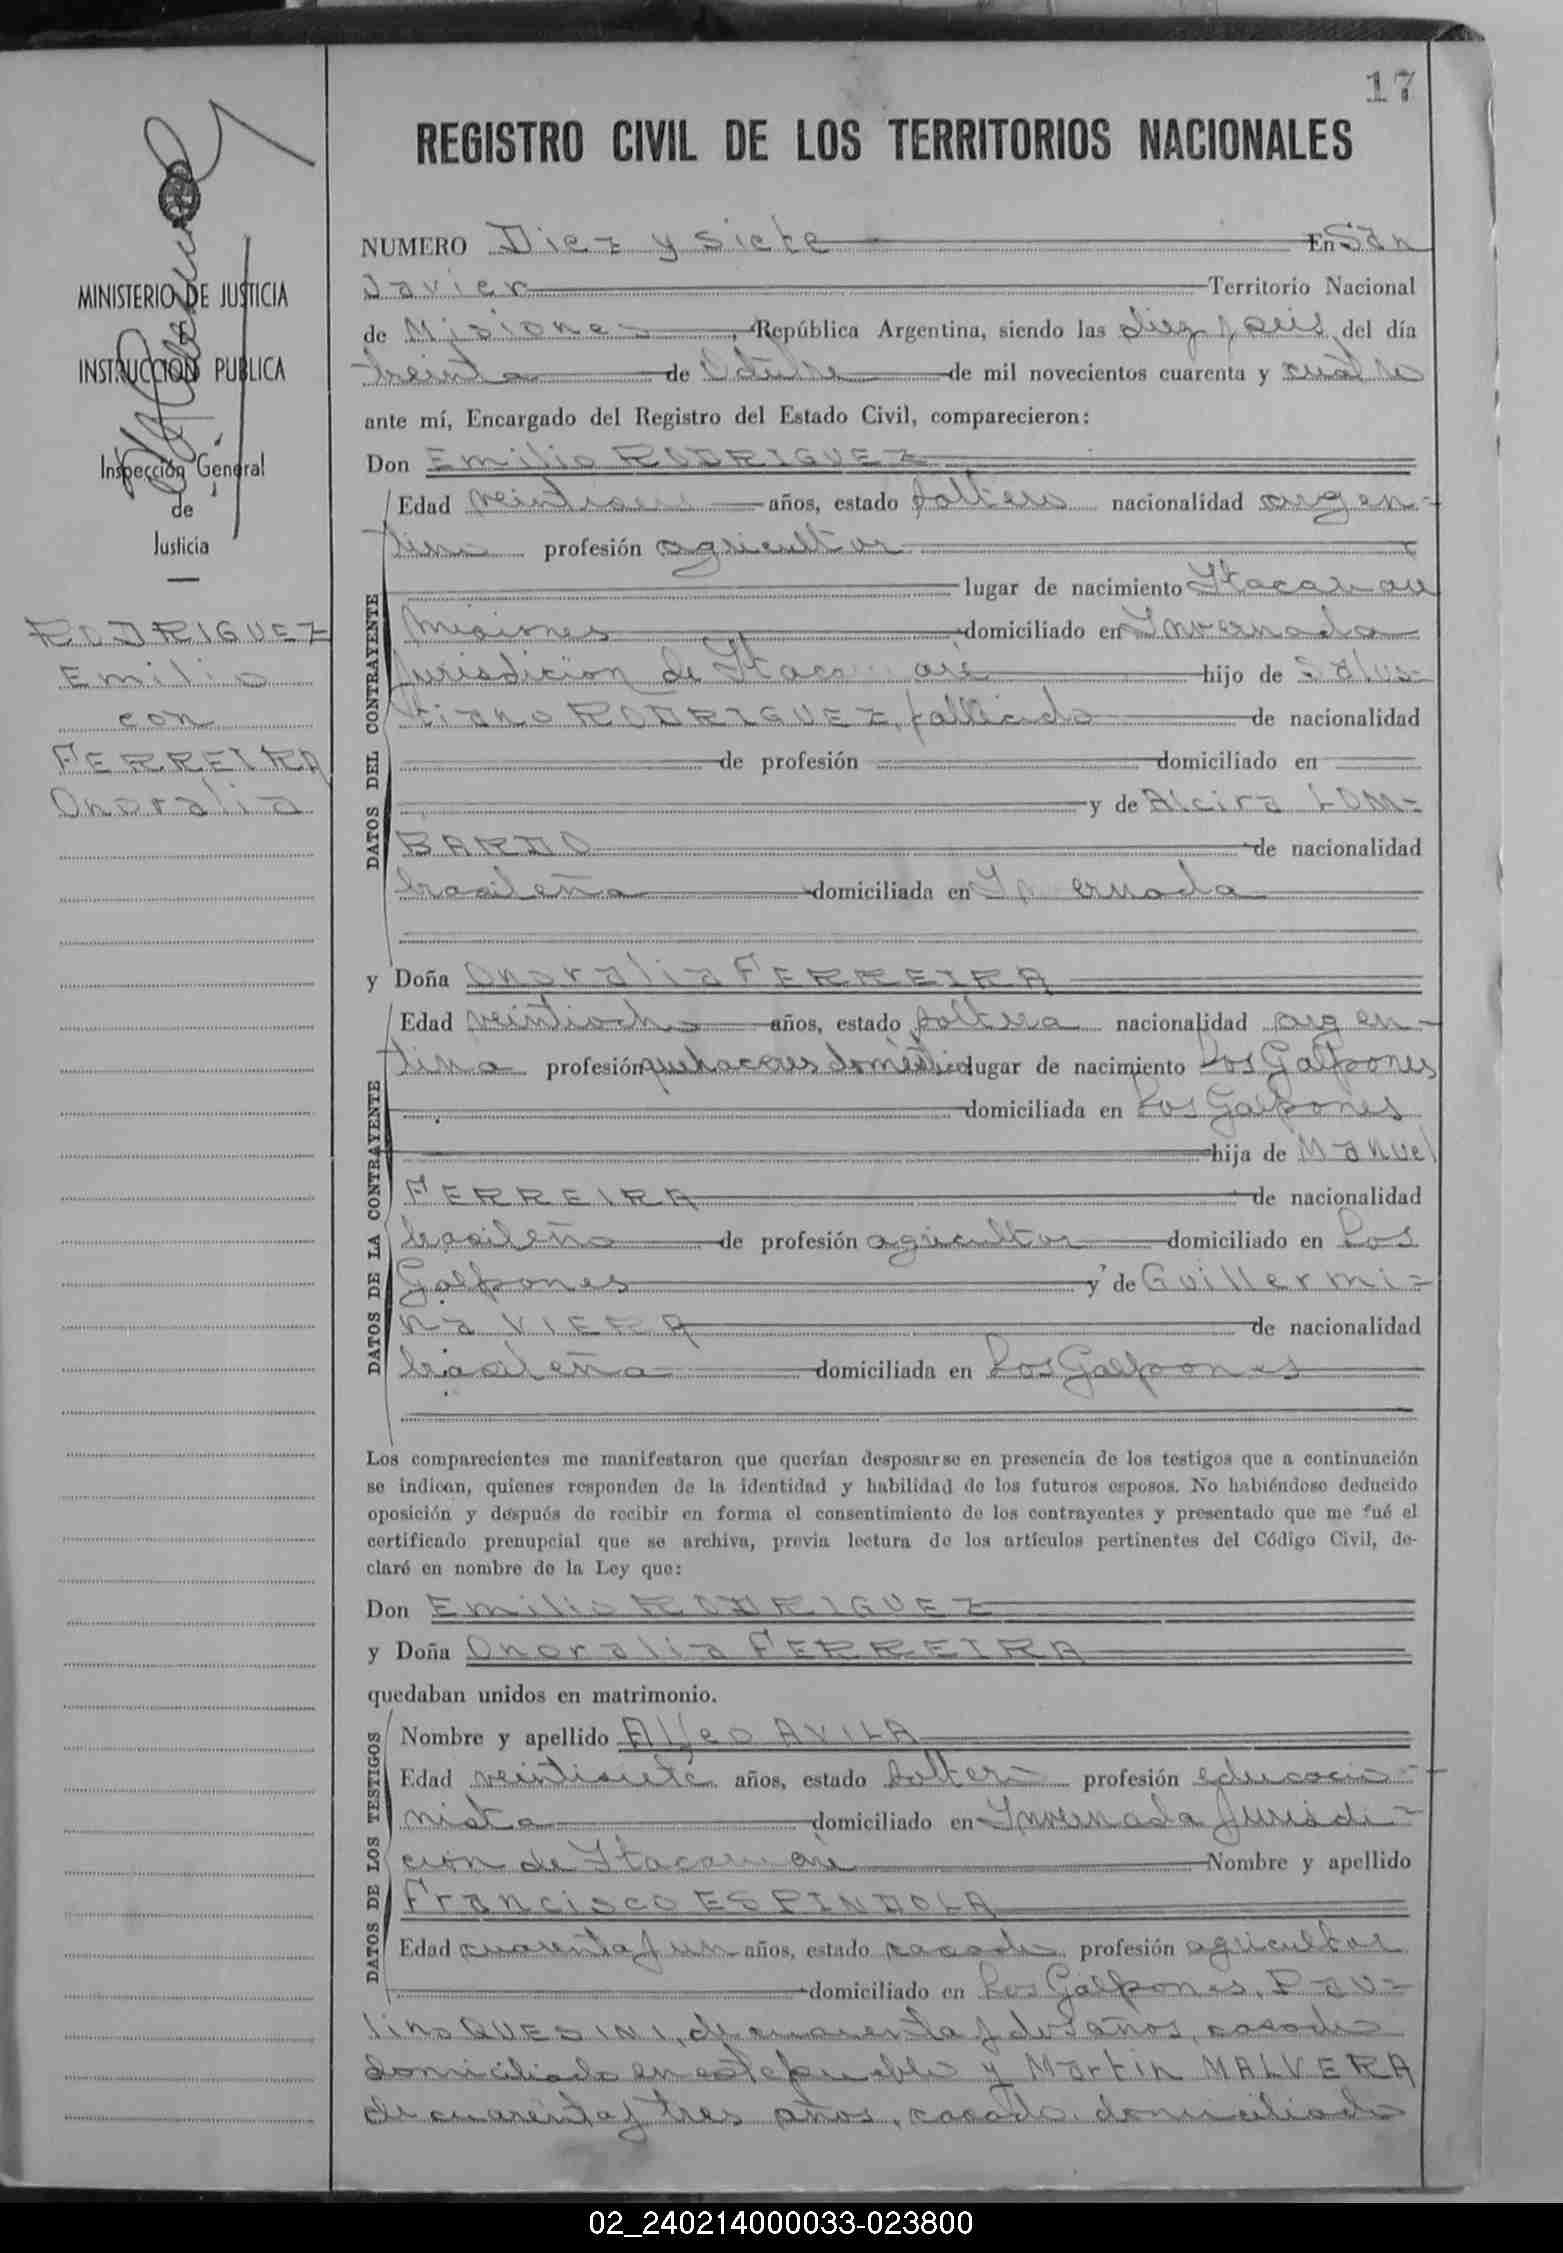 17
REGISTRO CIVIL DE LOS TERRITORIOS NACIONALES
MINISTERIO DE JUSTICIA
E
INSTRUCCION PUBLICA
Inspección General
de
Justicia
RODRIGUEZ
Emilio
con
FERREIRA
Onoralia
NUMERO Diez y siete En San
Javier Territorio Nacional
de Misiones, República Argentina, siendo las diez y seis del día
treinta de Octubre de mil novecientos cuarenta y cuatro
ante mí, Encargado del Registro del Estado Civil, comparecieron:
Don Emilio RODRIGUEZ
DATOS DEL CONTRAYENTE
Edad años, estado soltero nacionalidad argen-
tino profesión agricultor
lugar de nacimiento Itacaruaré
Misiones domiciliado en Invernada
Jurisdición de Itacaruaré hijo de Salus-
tiano RODRIGUEZ, fallecido de nacionalidad
de profesión domiciliado en
y de Alcira LOM-
BARDO de nacionalidad
brasileña domiciliada en Invernada
y Doña Onoralia FERREIRA
DATOS DE LA CONTRAYENTE
Edad veintiocho años, estado soltera nacionalidad argen-
tina profesión quehaceres domésticos lugar de nacimiento Los Galpones
domiciliada en Los Galpones
hija de Manuel
FERREIRA de nacionalidad
brasileño de profesión agricultor domiciliado en Los
Galpones y de Guillermi-
na VIERA de nacionalidad
brasileña domiciliada en Los Galpones
Los comparecientes me manifestaron que querían desposarse en presencia de los testigos que a continuación
se indican, quienes responden de la identidad y habilidad de los futuros esposos. No habiéndose deducido
oposición y después de recibir en forma el consentimiento de los contrayentes y presentado que me fué el
certificado prenupcial que se archiva, previa lectura de los artículos pertinentes del Código Civil, de-
claré en nombre de la Ley que:
Don Emilio RODRIGUEZ
y Doña Onoralia FERREIRA
quedaban unidos en matrimonio.
DATOS DE LOS TESTIGOS
Nombre y apellido Alfeo AVILA
Edad veintisiete años, estado soltero profesión educacio-
nista domiciliado en Invernada Jurisdi-
ción de Itacaruaré Nombre y apellido
Francisco ESPINDOLA
Edad cuarenta y un años, estado casado profesión agricultor
domiciliado en Los Galpones, Pau-
lino QUESINI, de cuarenta y dos años, casado
domiciliado en este pueblo y Martin MALVERA
de cuarenta y tres años, casado, domiciliado
02_240214000033-023800